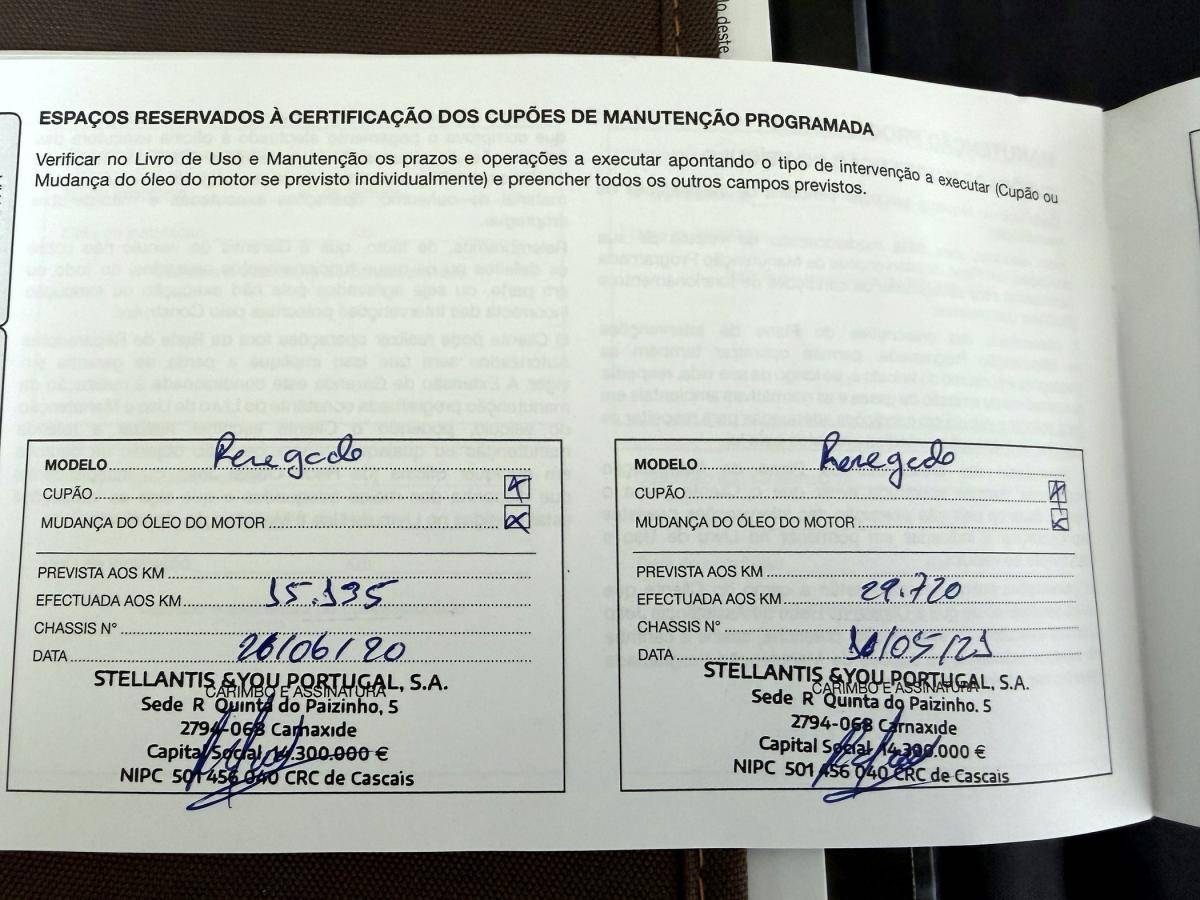 o deste
ESPAÇOS RESERVADOS À CERTIFICAÇÃO DOS CUPÕES DE MANUTENÇÃO PROGRAMADA
Verificar no Livro de Uso e Manutenção os prazos e operações a executar apontando o tipo de intervenção a executar (Cupão ou
Mudança do óleo do motor se previsto individualmente) e preencher todos os outros campos previstos.
MODELO Renegado
CUPÃO
MUDANÇA DO ÓLEO DO MOTOR
PREVISTA AOS KM
EFECTUADA AOS KM 15.195
CHASSIS N°
DATA 26/06/20
STELLANTIS &YOU PORTUGAL, S.A.
CARIMBO E ASSINATURA
Sede R Quinta do Paizinho, 5
2794-068 Carnaxide
Capital Social 14.300.000 €
NIPC 501 456 040 CRC de Cascais
MODELO Renegado
CUPÃO
MUDANÇA DO ÓLEO DO MOTOR
PREVISTA AOS KM
EFECTUADA AOS KM 29.720
CHASSIS N°
DATA /05/21
STELLANTIS &YOU PORTUGAL, S.A.
CARIMBO E ASSINATURA
Sede R Quinta do Paizinho. 5
2794-068 Carnaxide
Capital Social 14.300.000 €
NIPC 501 456 040 CRC de Cascais